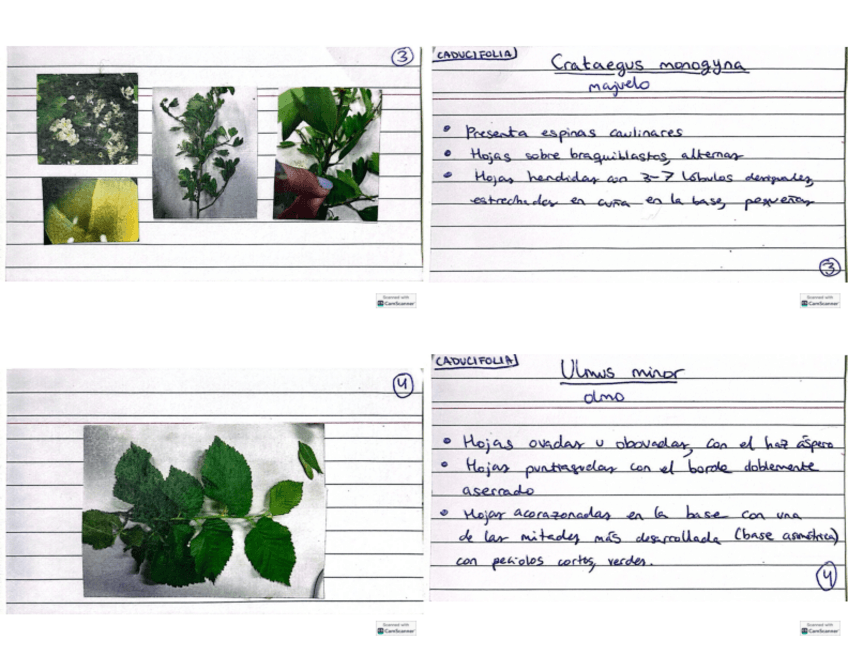 3
CADUCIFOLIA
Crataegus monogyna
majuelo
• Presenta espinas caulinares
• Hojas sobre braquiblastos, alternas
• Hojas hendidas con 3-7 lóbulos desiguales,
estrechadas en cuña en la base, pequeñas
3
Scanned with
CamScanner
Scanned with
CamScanner
4
CADUCIFOLIA
Ulmus minor
olmo
• Hojas ovadas u obovadas, con el haz áspero
• Hojas puntiagudas con el borde doblemente
aserrado
• Hojas acorazonadas en la base con una
de las mitades más desarrollada (base asimétrica)
con peciolos cortos, verdes.
4
Scanned with
CamScanner
Scanned with
CamScanner